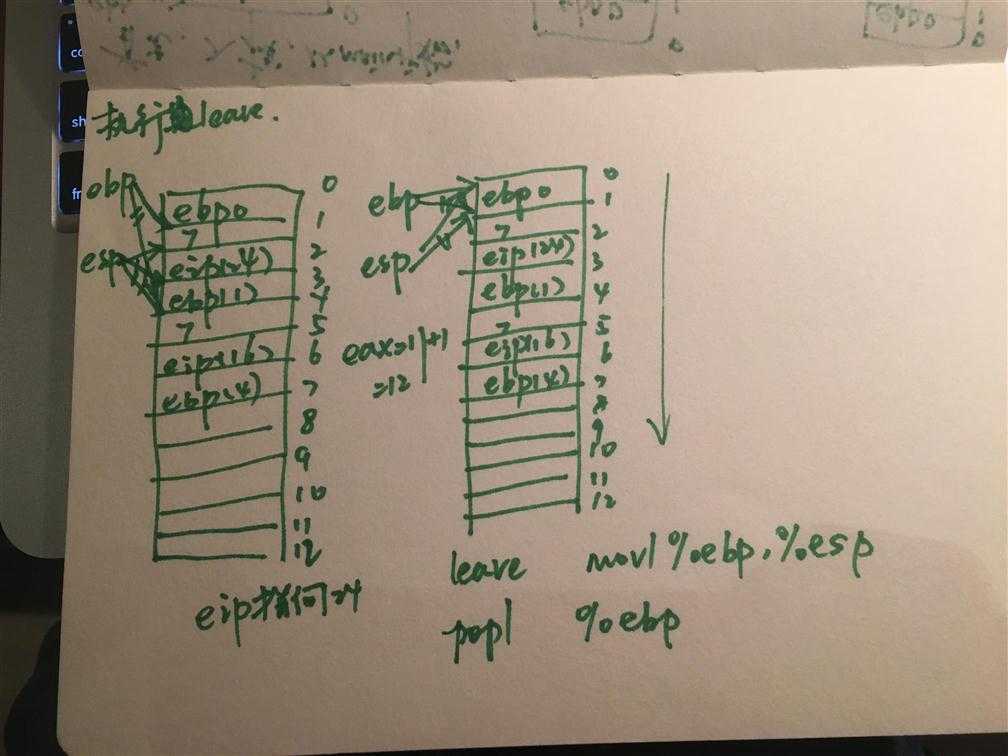 执行leave.
ebp
esp
ebp0
7
eip(24)
ebp(1)
7
eip(16)
ebp(4)
0
1
2
3
4
5
6
7
8
9
10
11
12
eip指向24
ebp
esp
eax=11+1
=12
ebp0
7
eip(24)
ebp(1)
7
eip(16)
ebp(4)
0
1
2
3
4
5
6
7
8
9
10
11
12
leave movl %ebp,%esp
popl %ebp